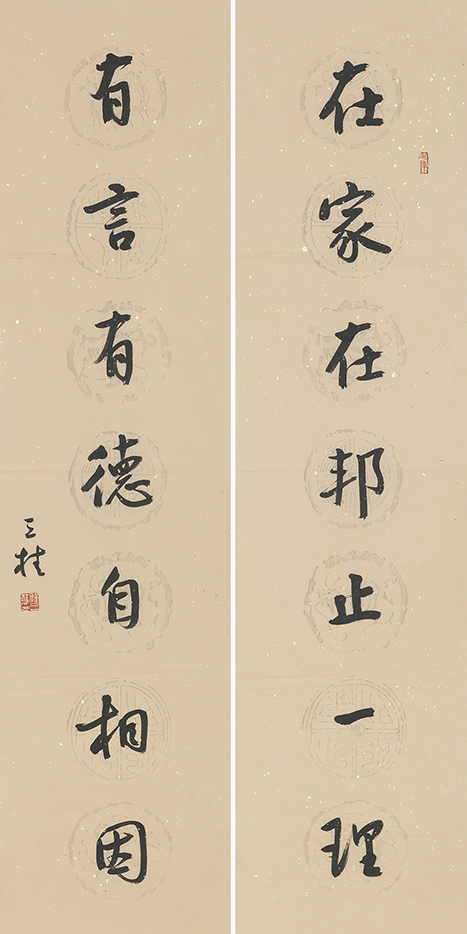 在家在邦止一理
有言有德自相因